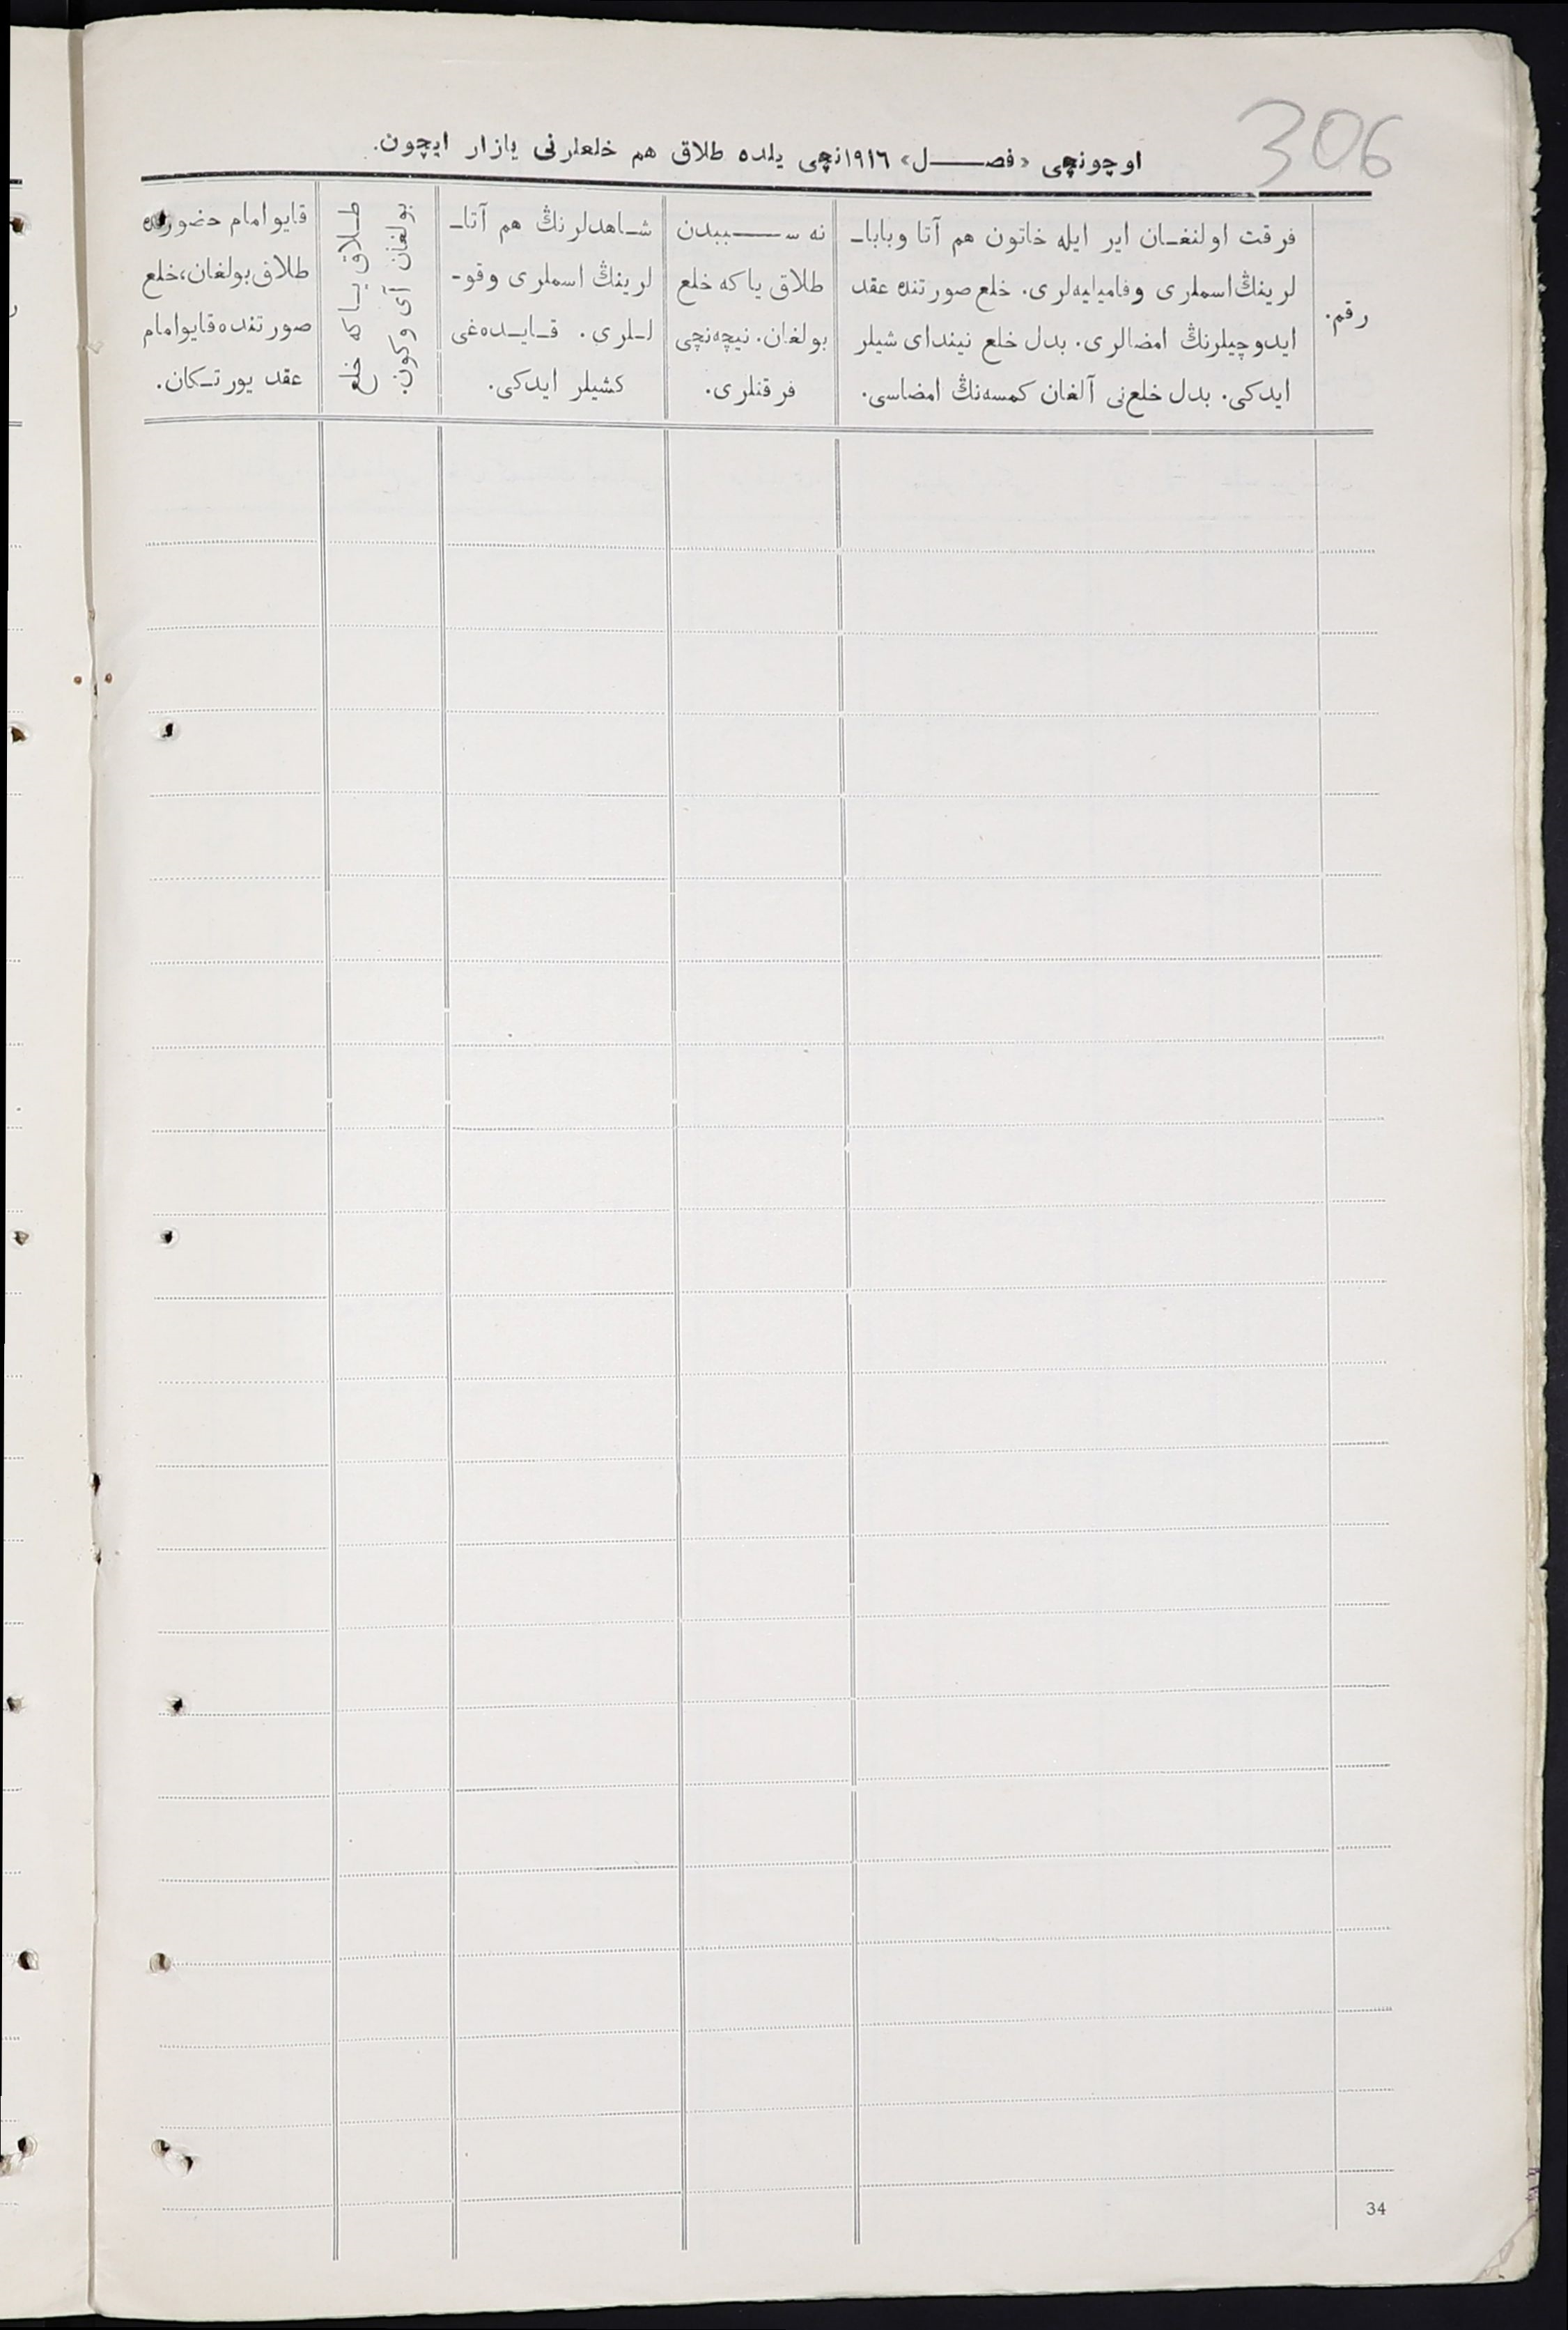 306
اوچونچی «فصـــــل» ١٩١٦نچی یلده طلاق هم خلعلرنی یازار ایچون.
رقم.
فرقت اولنغـان ایر ایله خاتون هم آتا وباباـ
لرینڭ اسملری وفامیلیه‌لری. خلع صورتنده عقد
ایدوچیلرنڭ امضالری. بدل خلع نیندای شیلر
ایدکی. بدل خلع‌نی آلغان کمسه‌نڭ امضاسی.
نه ســـــببدن
طلاق یاکه خلع
بولغان. نیچه‌نچی
فرقتلری.
شـاهدلرنڭ هم آتاـ
لرینڭ اسملری وقوـ
لـلری. قـایـده‌غی
کشیلر ایدکی.
طـلاق یـاکه خلع
بولغان آی وکون.
قایو امام حضورنده
طلاق بولغان، خلع
صورتنده قایو امام
عقد یورتـکان.
34